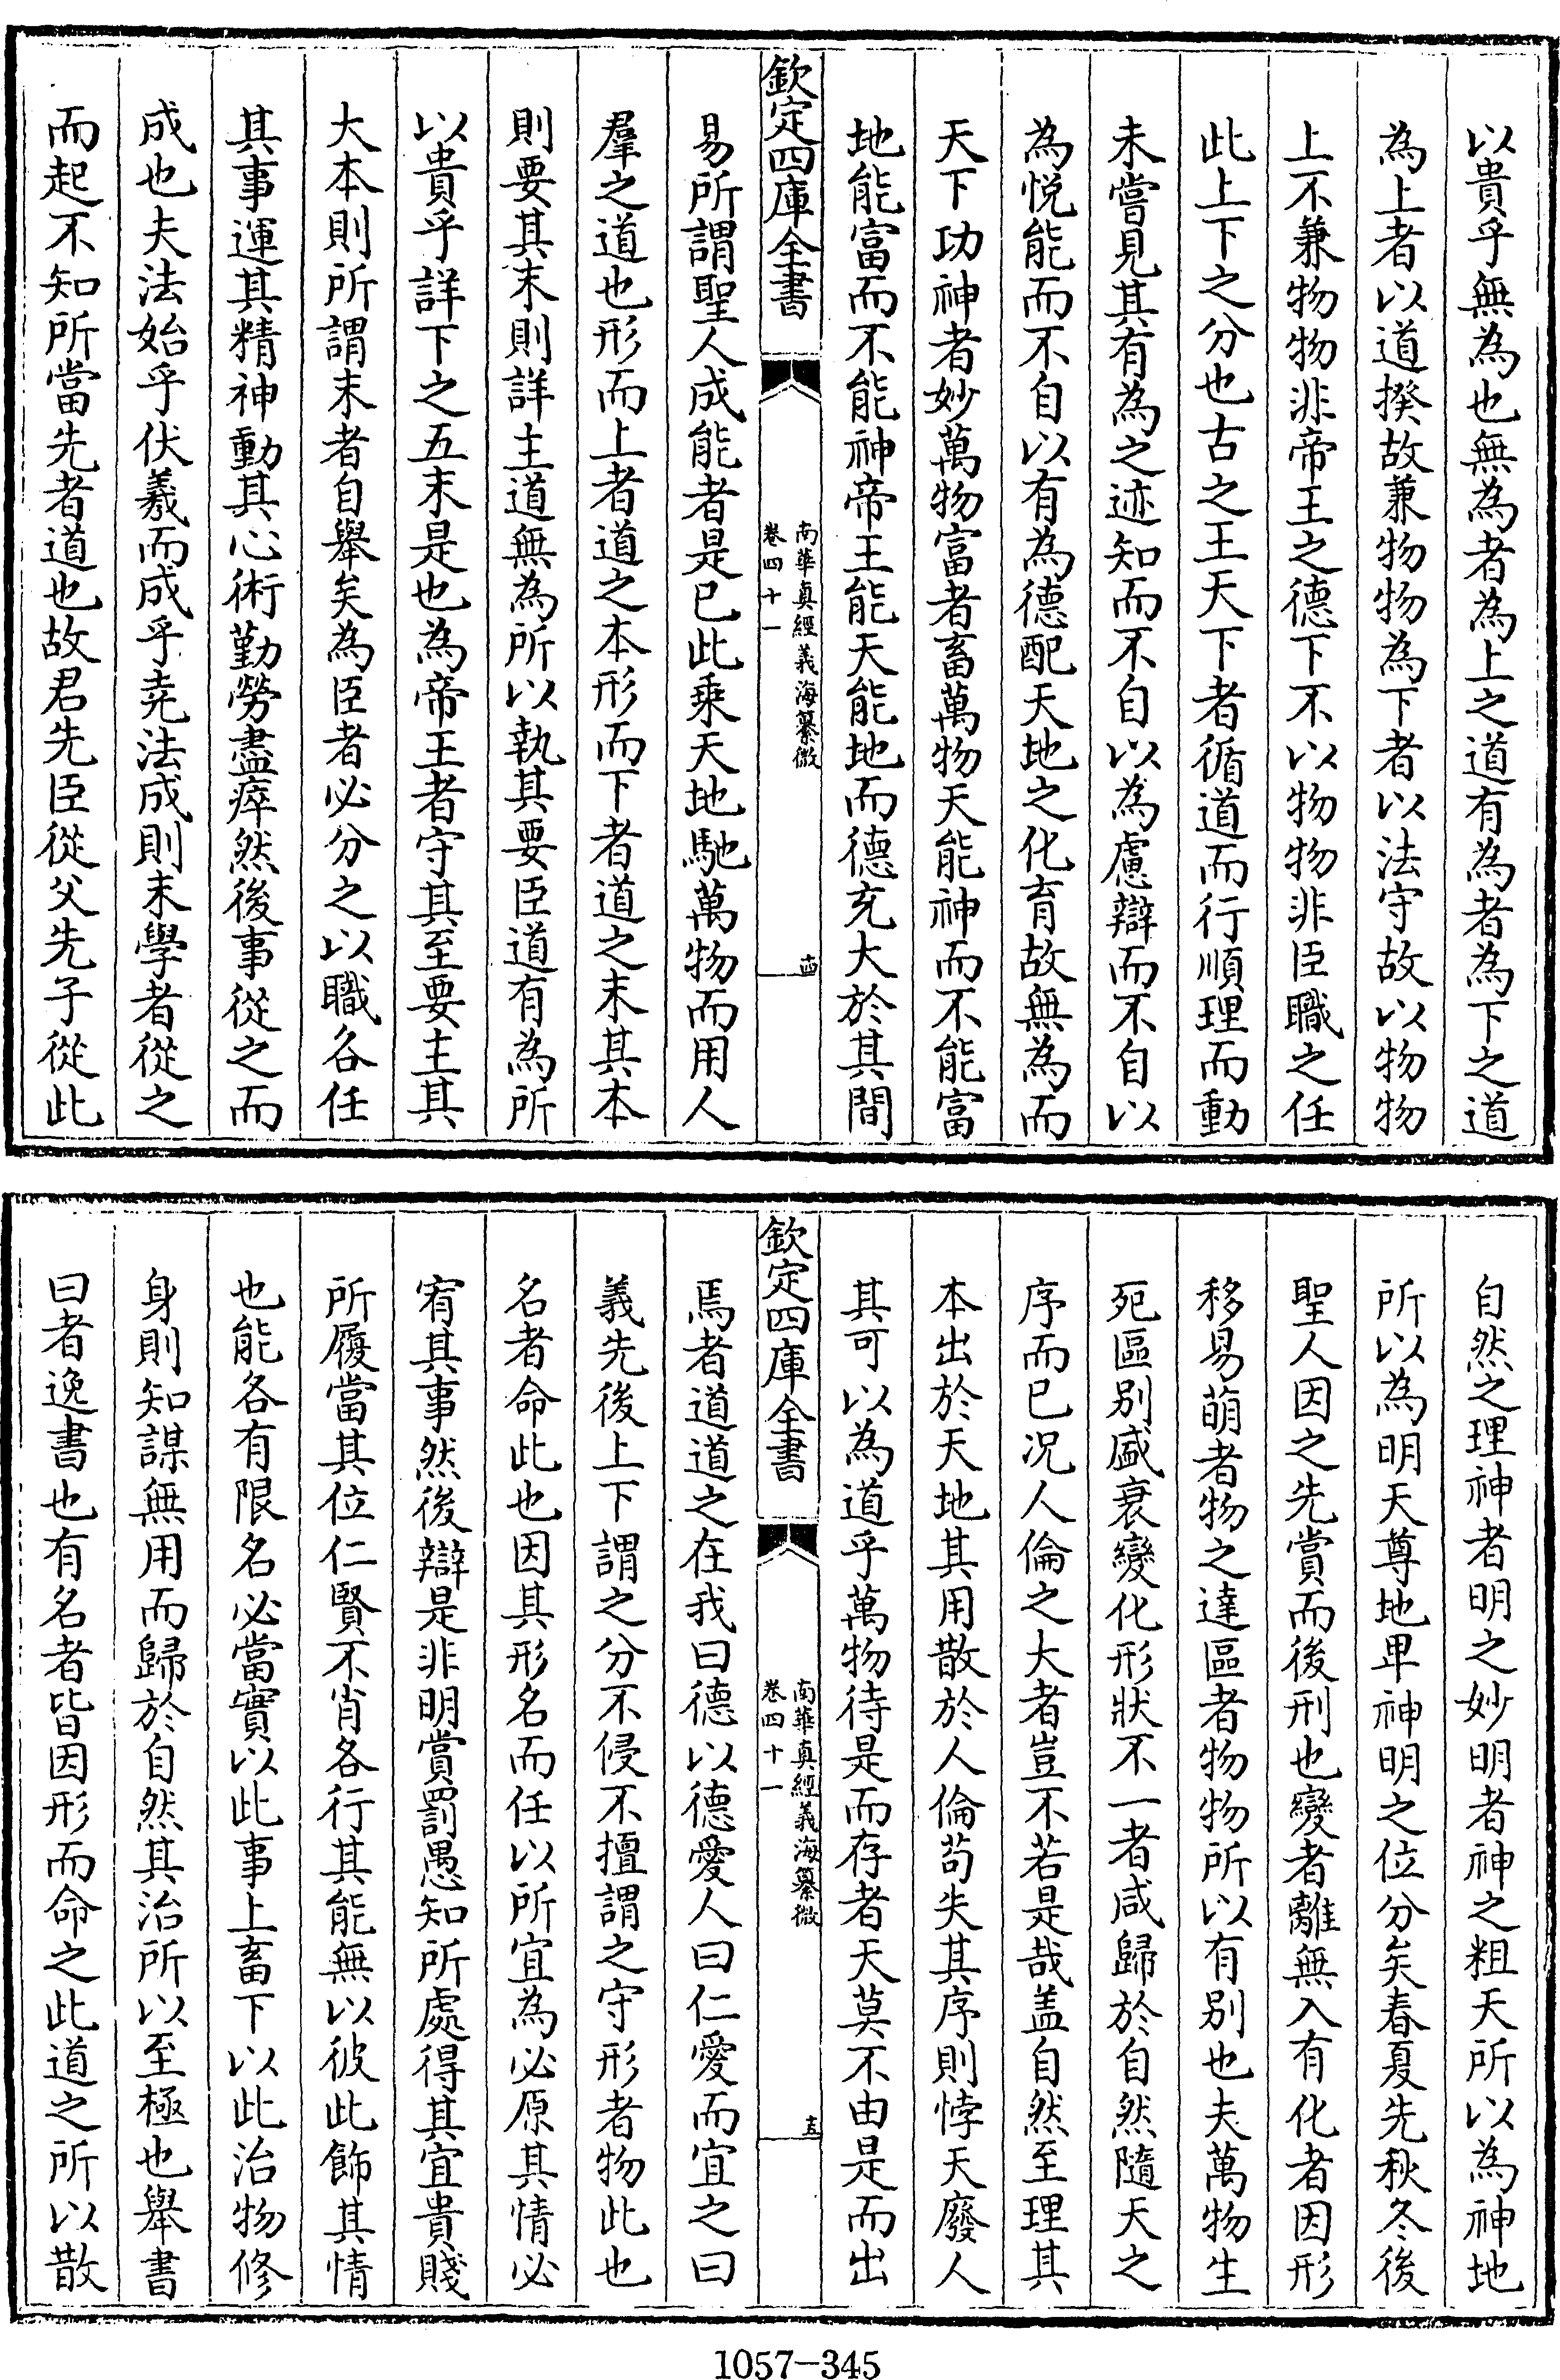 以貴乎無為也無為者為上之道有為者為下之道
為上者以道揆故兼物物為下者以法守故以物物
上不兼物物非帝王之德下不以物物非臣職之任
此上下之分也古之王天下者循道而行順理而動
未嘗見其有為之迹知而不自以為慮辯而不自以
為悅能而不自以有為德配天地之化育故無為而
天下功神者妙萬物富者畜萬物天能神而不能富
地能富而不能神帝王能天能地而德充大於其間
欽定四庫全書
南華真經義海纂微
卷四十一
十四
易所謂聖人成能者是已此乘天地馳萬物而用人
羣之道也形而上者道之本形而下者道之末其本
則要其末則詳主道無為所以執其要臣道有為所
以貴乎詳下之五末是也為帝王者守其至要主其
大本則所謂末者自舉矣為臣者必分之以職各任
其事運其精神動其心術勤勞盡瘁然後事從之而
成也夫法始乎伏羲而成乎堯法成則末學者從之
而起不知所當先者道也故君先臣從父先子從此
自然之理神者明之妙明者神之粗天所以為神地
所以為明天尊地卑神明之位分矣春夏先秋冬後
聖人因之先賞而後刑也變者離無入有化者因形
移易萌者物之達區者物物所以有別也夫萬物生
死區別盛衰變化形狀不一者咸歸於自然隨天之
序而已况人倫之大者豈不若是哉盖自然至理其
本出於天地其用散於人倫苟失其序則悖天廢人
其可以為道乎萬物待是而存者天莫不由是而出
欽定四庫全書
南華真經義海纂微
卷四十一
十五
焉者道道之在我曰德以德愛人曰仁愛而宜之曰
義先後上下謂之分不侵不擅謂之守形者物此也
名者命此也因其形名而任以所宜為必原其情必
宥其事然後辯是非明賞罰愚知所處得其宜貴賤
所履當其位仁賢不肖各行其能無以彼此飾其情
也能各有限名必當實以此事上畜下以此治物修
身則知謀無用而歸於自然其治所以至極也舉書
曰者逸書也有名者皆因形而命之此道之所以散
1057-345